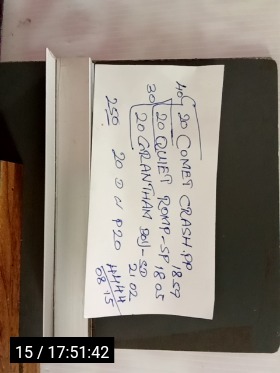 40 20 COMET CRASH. PP 18.59
30 20 QUIET ROMP-SP 18 05
20 GRANTHAM BOY-SD 21.02
250 20 D N P20 4444
08 15
15 / 17:51:42